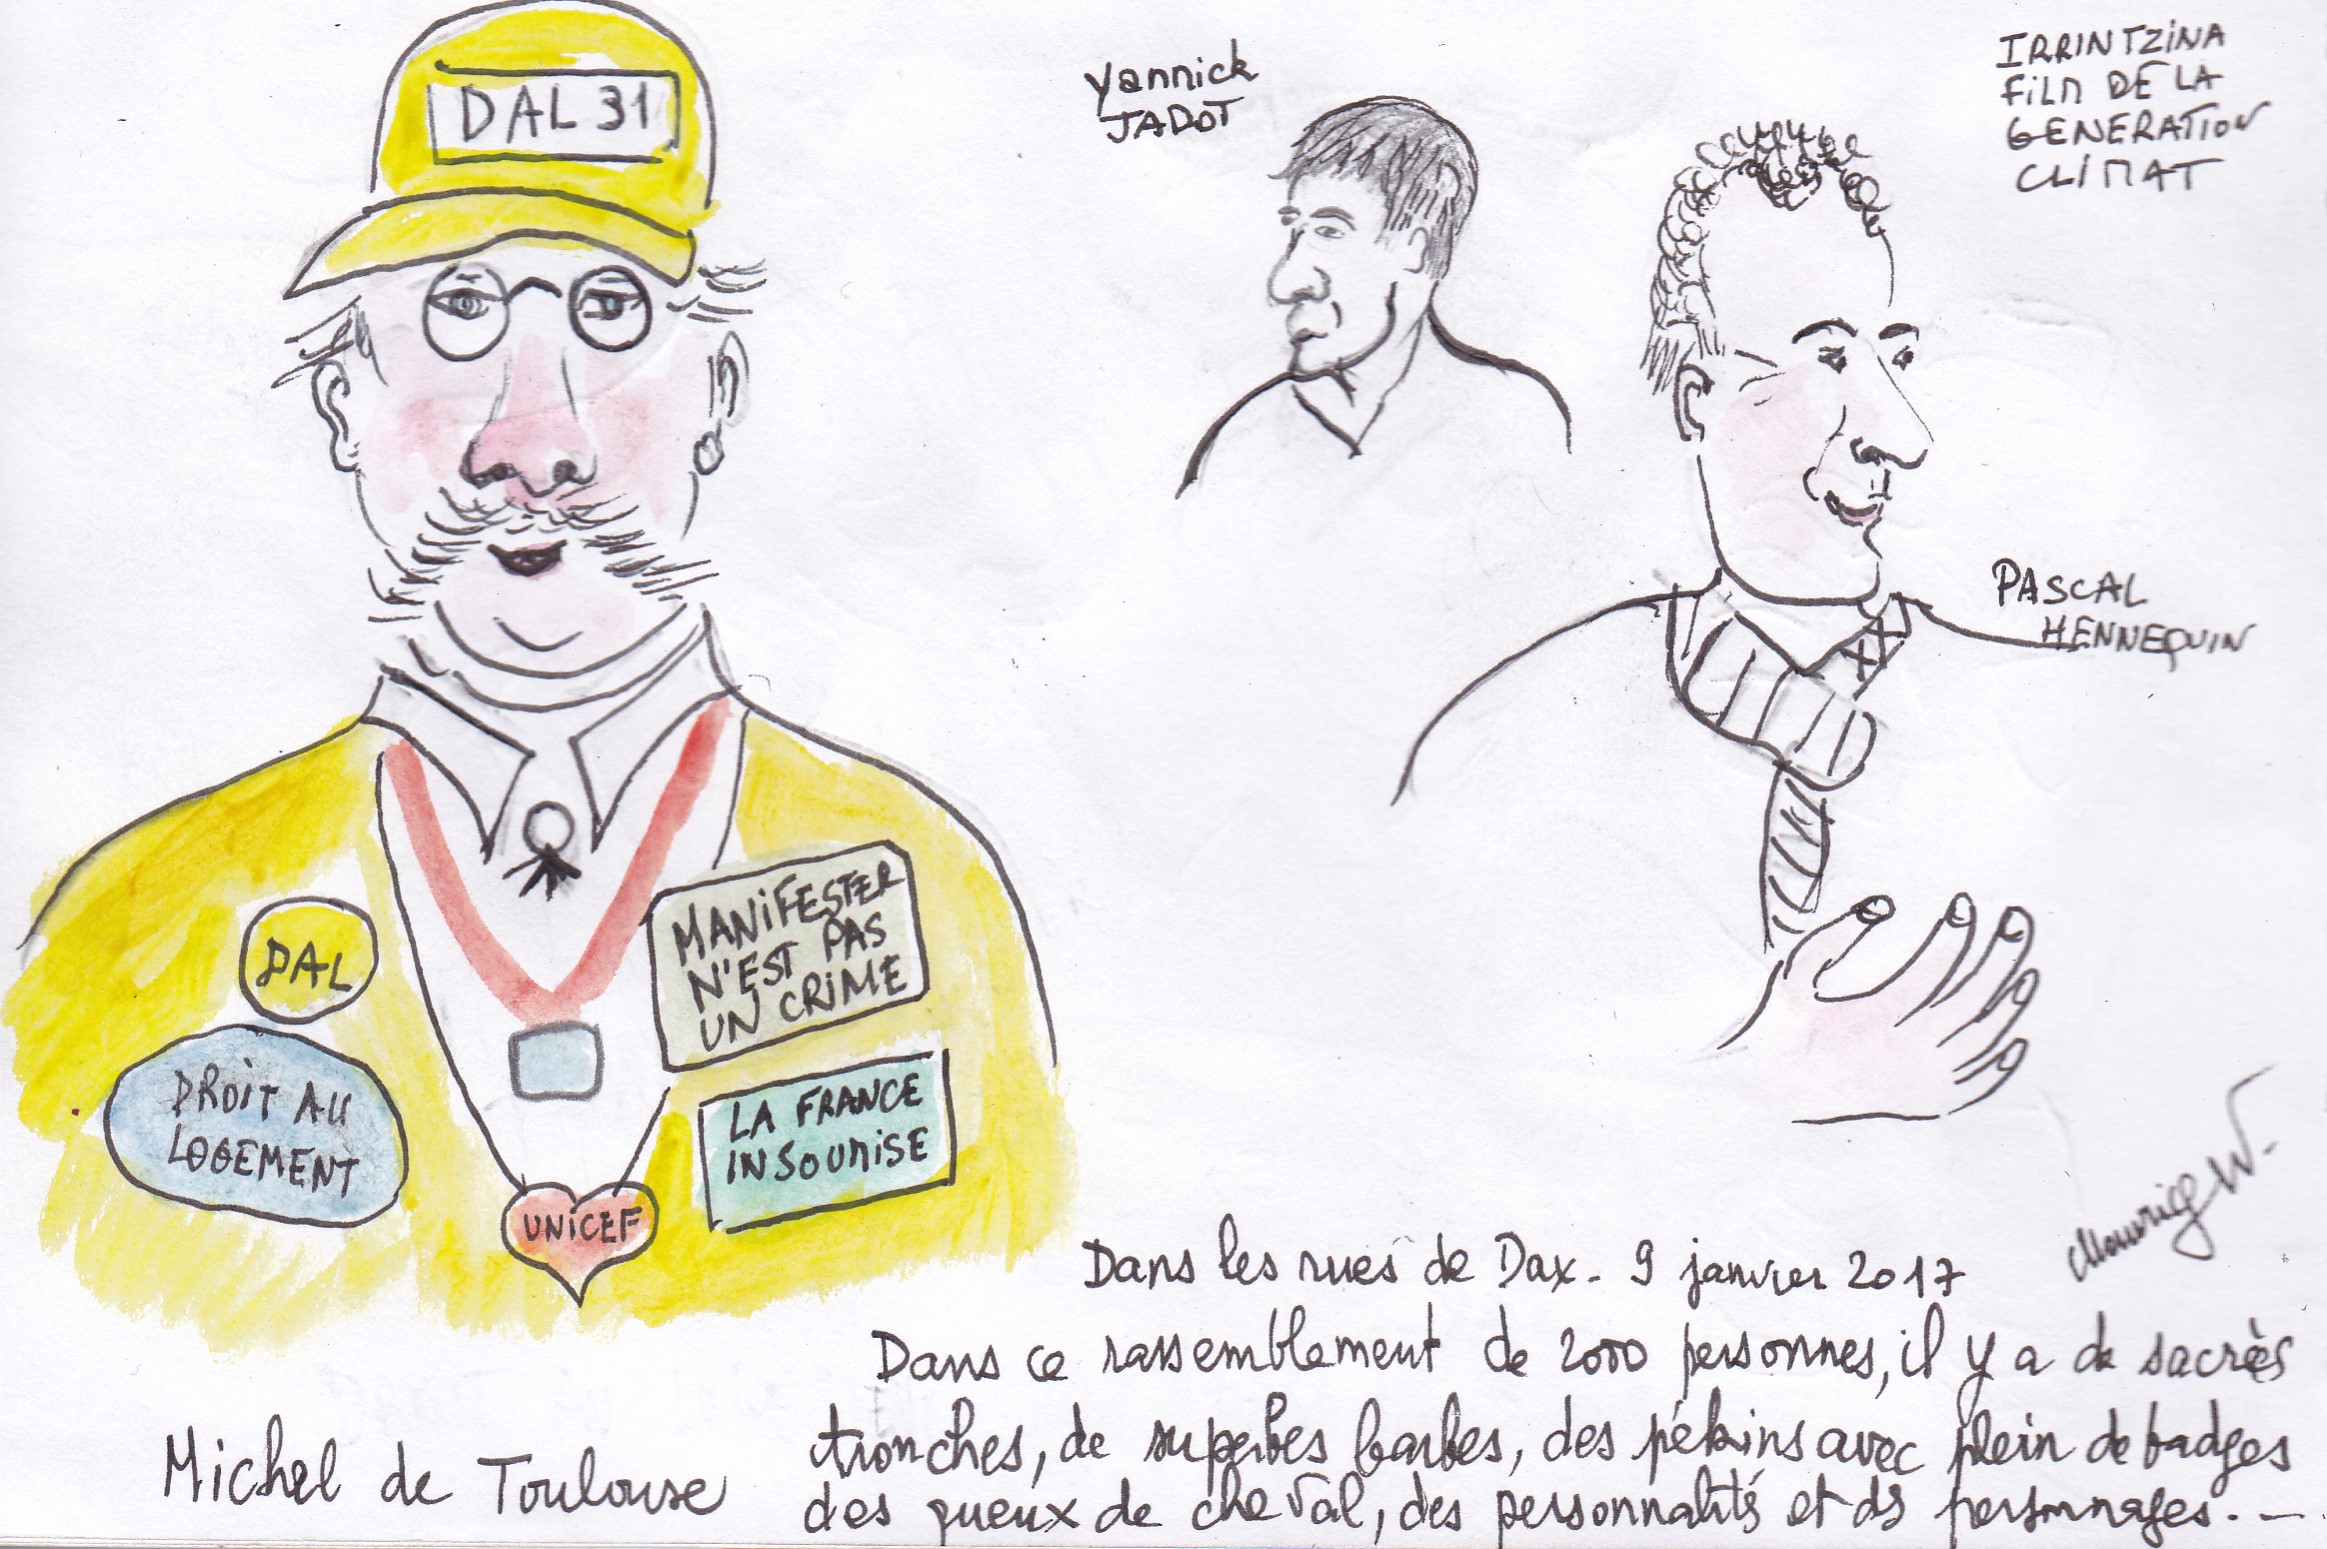 DAL 31
Yannick
JADOT
IRRINTZINA
FILM DE LA
GENERATION
CLIMAT
PASCAL
HENNEQUIN
MANIFESTER
N'EST PAS
UN CRIME
DAL
DROIT AU
LOGEMENT
LA FRANCE
INSOUMISE
UNICEF
Dans les rues de Dax - 9 janvier 2017
Dans ce rassemblement de 2000 personnes, il y a de sacrés
tronches, de superbes barbes, des pékins avec plein de badges
des queux de cheval, des personnalités et des personnages. -
Michel de Toulouse